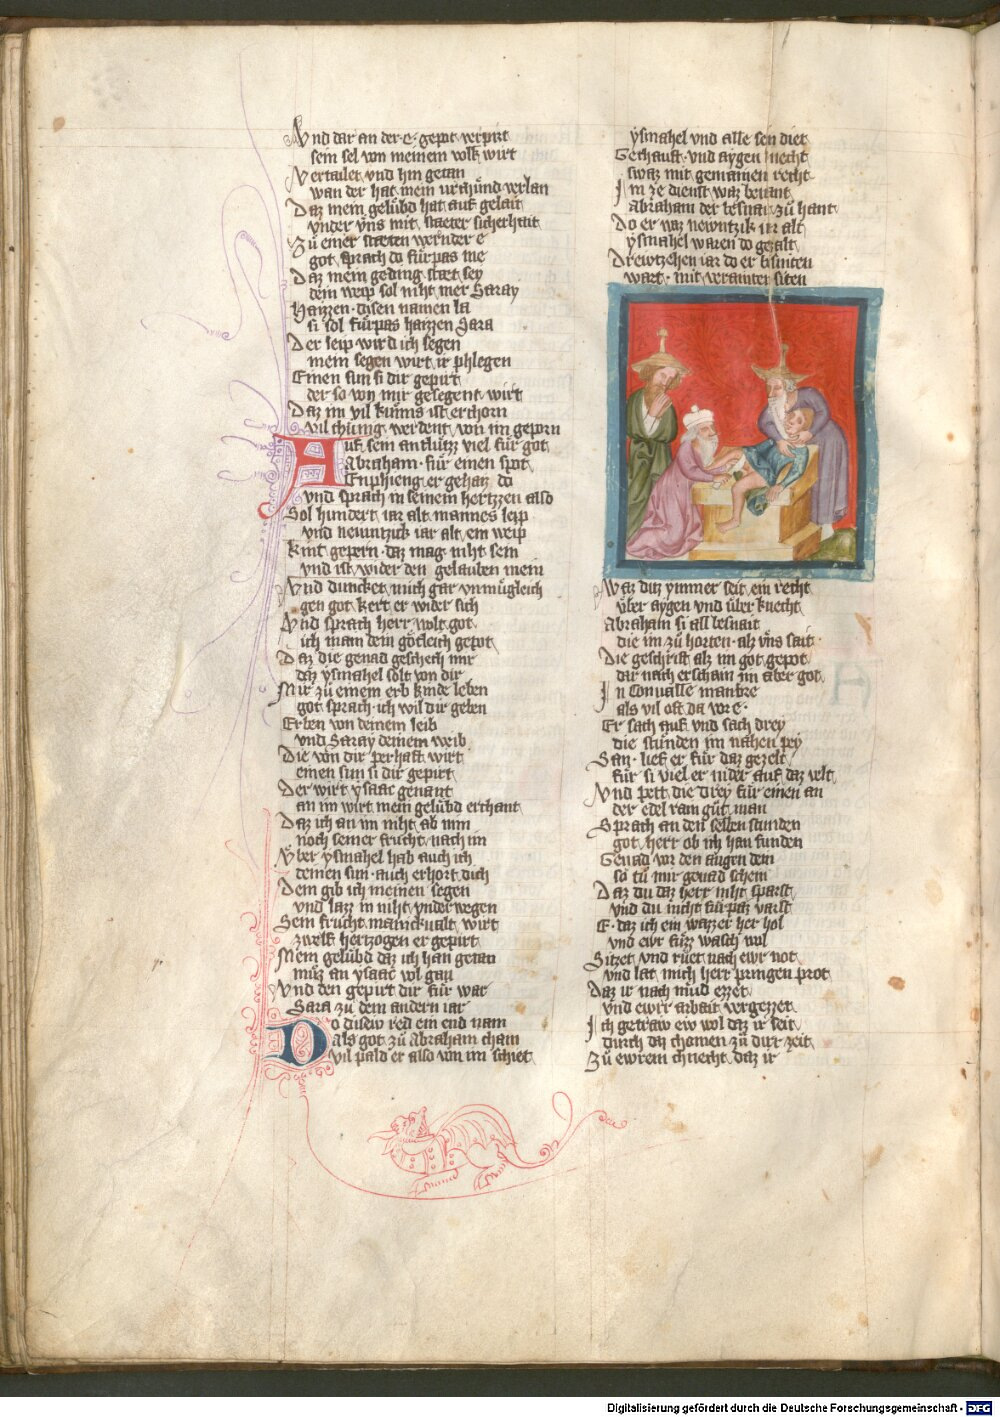 Vnd dar an der e gepot verpirt
sein sel von meinem volk wirt
Vertailet vnd hin getan
wan der hat mein vrchund verlan
Daz mein gelübd hat auf gelait
vnder vns mit stæter sicherhait
Zů einer stæten wernder e
got sprach do fürpas me
Daz mein geding stæt sey
dein weip sol niht mer Saray
Haizzen disen namen la
si sol fürpas haizzen Sara
Der leip wird ich segen
mein segen wirt ir phlegen
Einen sun si dir gepirt
der so von mir gesegent wirt
Daz im vil kunns ist erchorn
vil chunig werdent von im geporn
Auf sein antlutzz viel für got
Abraham für einen spot
Enphieng er gehaiz do
vnd sprach in seinem hertzzen also
Sol hundert iar alt mannes leip
vnd newntzick iar alt ein weip
Kint gepern daz mag niht sein
vnd ist wider den gelauben mein
Vnd duncket mich gar vnmügleich
gen got kert er wider sich
Vnd sprach herr wolt got
ich mam dein götleich gepot
Daz die genad geschech mir
daz ysmahel solt von dir
Mir zů einem erb kinde leben
got sprach ich wil dir geben
Erben von deinem leib
vnd Saray deinem weib
Die von dir perhaft wirt
einen sun si dir gepirt
Der wirt ysaac genant
an im wirt mein gelübd erchant
Daz ich an im niht ab nim
noch seiner frucht nach im
Vber ysmahel hab auch ich
deinen sun auch erhort dich
Dem gib ich meinen segen
vnd lazz in niht vnderwegen
Sein frucht mainckualt wirt
zwelf hertzogen er gepirt
Mein gelübd daz ich han getan
můz an ysaac vol gan
Vnd den gepirt dir für war
Sara zů dem andern iar
Do disew red ein end nam
als got zů Abraham cham
vil pald er also von im schiet
ysmahel vnd alle sen diet
Gechauft vnd aygen knecht
swaz mit gemainen recht
Im ze dienst waz benant
Abraham der besnait zů hant
Do er waz newntzik iar alt
ysmahel waren do gezalt
Drewtzehen iar do er bisniten
wart mit veranter siten
Waz ditz ymmer seit ein recht
über aygen vnd über knecht
Abraham si all besnait
die im zů horten alz vns sait
Die geschrift alz im got gepot
dar nach erschain im aber got
In Conualle mambre
als vil oft da vor e
Er sach auf vnd sach drey
die stunden im nahen pey
San lief er für daz gezelt
für si viel er nider auf daz velt
Vnd pett die drey für einen an
der edel rain gůt man
Sprach an den selben stunden
got herr ob ich han funden
Genad vor den augen dein
so tů mir genad schein
Daz du daz herr niht sparst
vnd du nicht fürpaz varst
E daz ich ein wazzer her hol
vnd ewr füzz wasch wol
Sitzet vnd růet nach ewr not
vnd lat mich herr pringen prot
Daz ir nach müd ezzet
vnd ewrr arbait vergezzet
Ich getraw ew wol daz ir seit
durch daz chomen zů dirr zeit
Zů ewrem chnecht daz ir
Digitalisierung gefördert durch die Deutsche Forschungsgemeinschaft - DFG